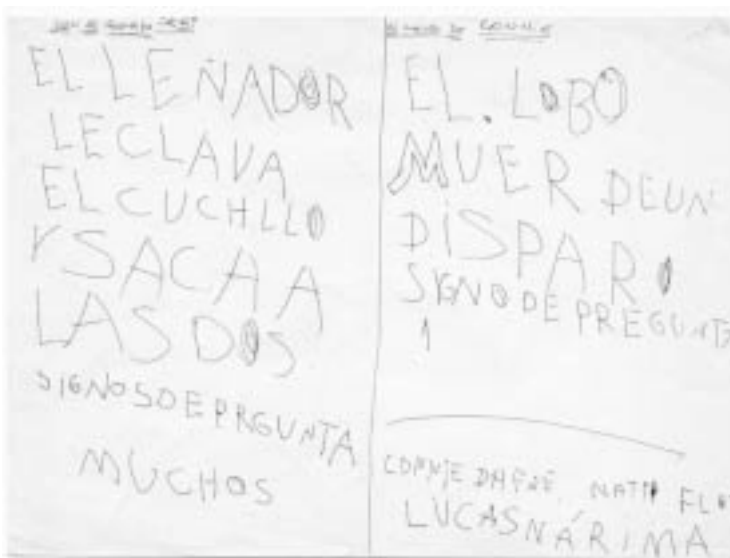 EL LEÑADOR
LE CLAVA
EL CUCHLLO
Y SACA A
LAS DOS
SIGNOS DE PRGUNTA
MUCHOS
EL. LOBO
MUER DE UN
DISPARO
SIGNO DE PREGUNTA
1
NATI FLO
LUCAS NÁRIMA